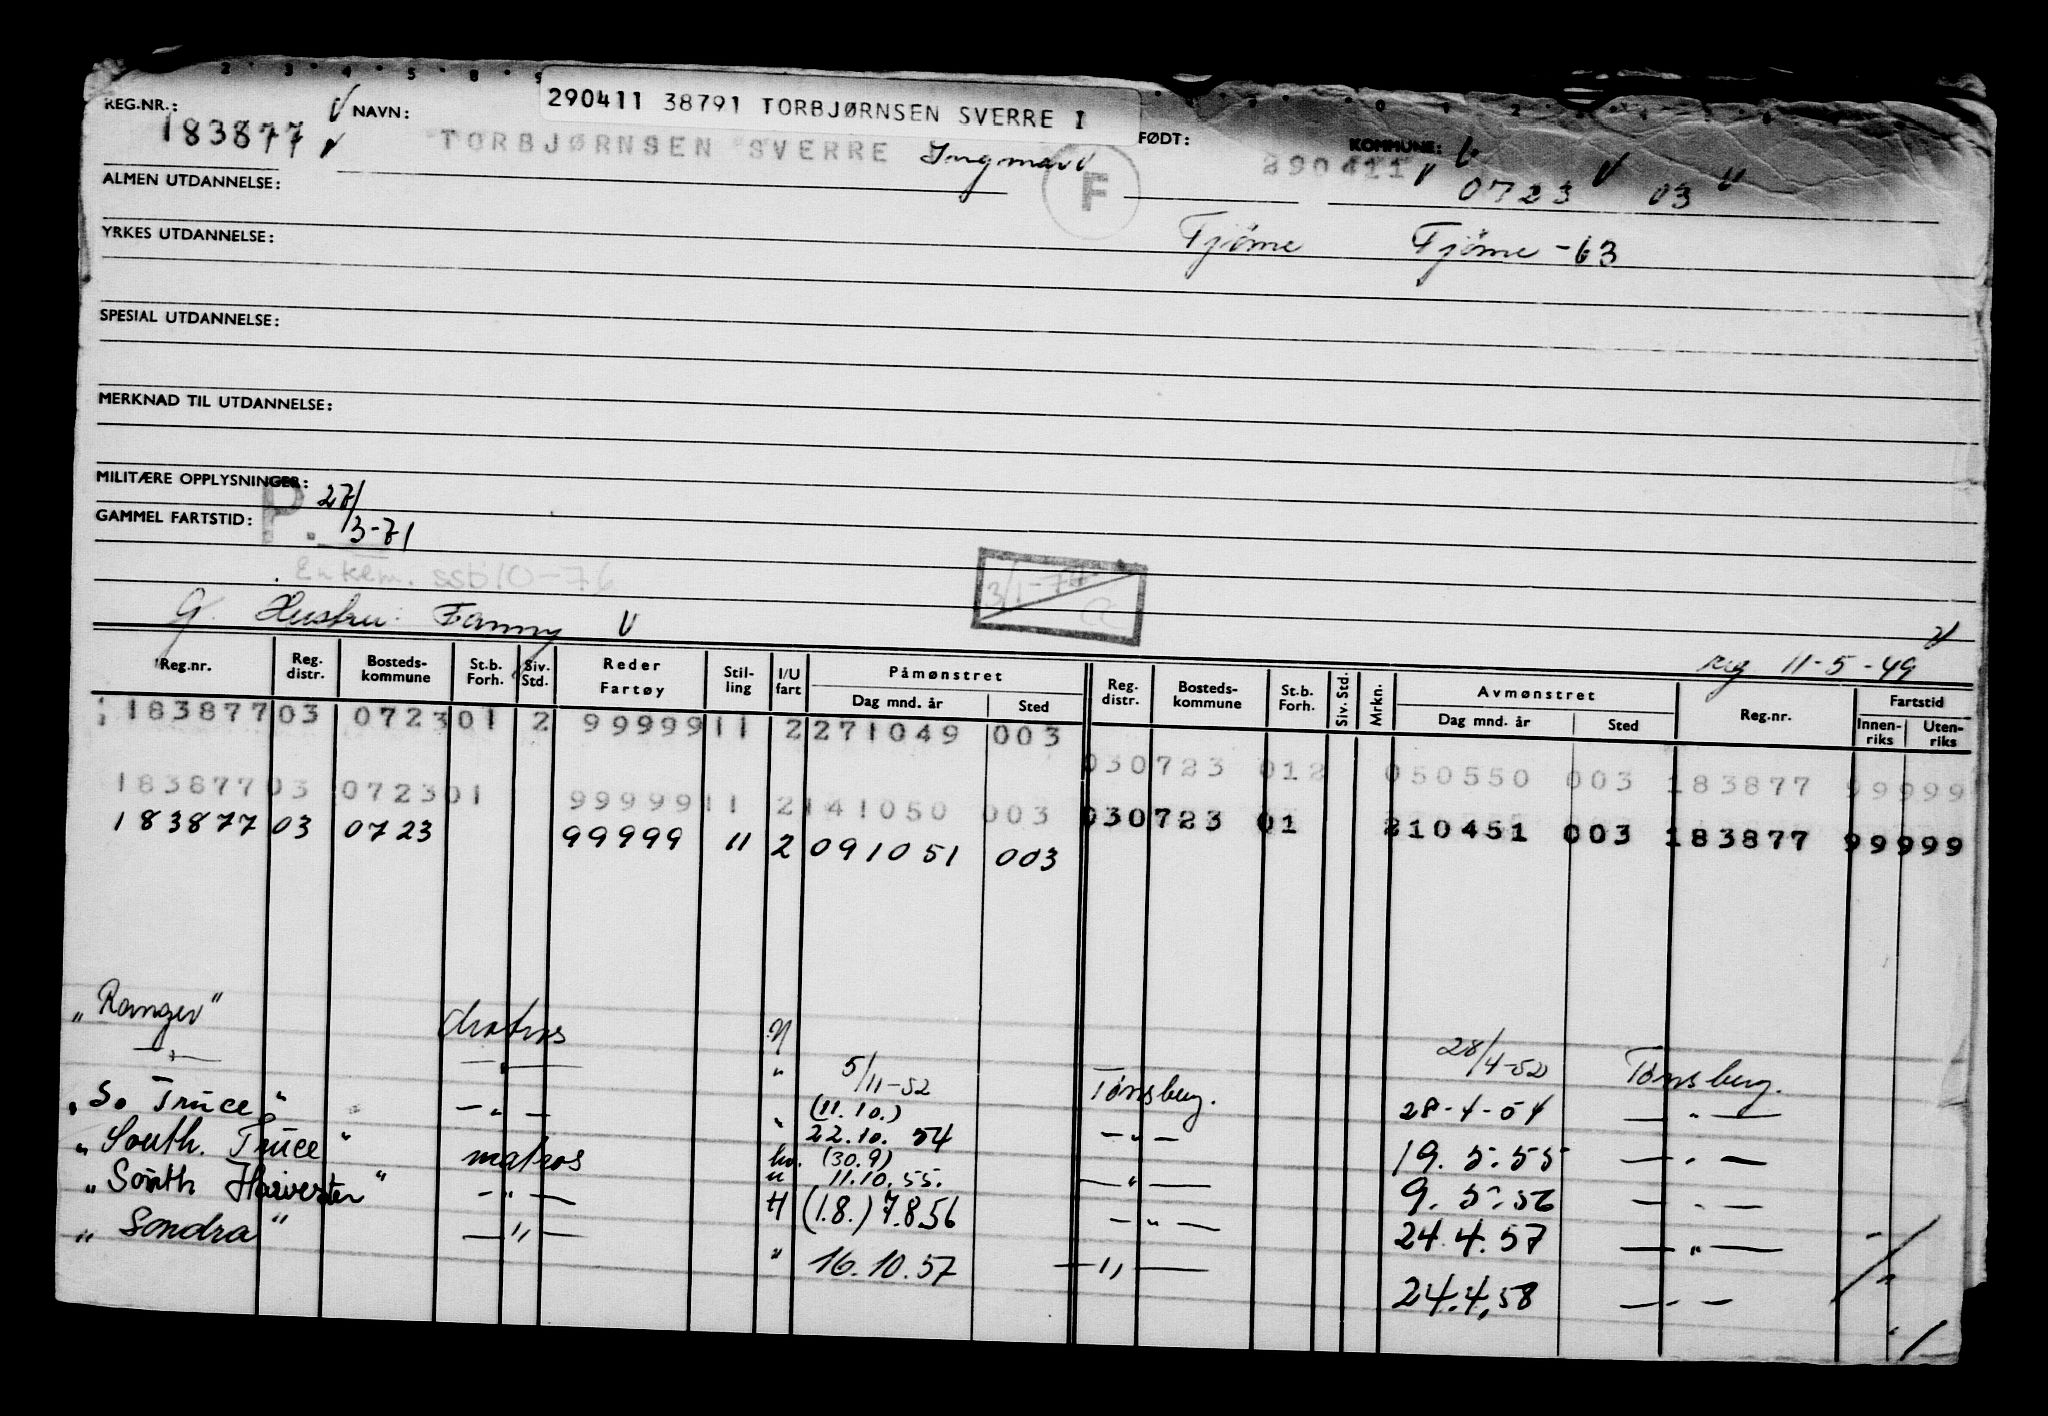 290411 38791 TORBJØRNSEN SVERRE I
REG.NR.: 183877 NAVN: TORBJØRNSEN SVERRE Ingmar FØDT: 290411 KOMMUNE: 0723 03
F
ALMEN UTDANNELSE:
Tjöme Tjöme -63
YRKES UTDANNELSE:
SPESIAL UTDANNELSE:
MERKNAD TIL UTDANNELSE:
MILITÆRE OPPLYSNINGER:
P. 27/3-71
GAMMEL FARTSTID:
Enkem. ssb 10-76
3/1-77
G. Hustru: Fanny V
reg 11-5-49
Reg.nr. Reg. distr. Bosteds-kommune St.b. Forh. Siv. Std. Reder Fartøy Stil-ling I/U fart Påmønstret Dag mnd. år Sted Reg. distr. Bosteds-kommune St.b. Forh. Siv. Std. Mrkn. Avmønstret Dag mnd. år Sted Reg.nr. Fartstid Innen-riks Uten-riks
183877 03 0723 01 2 99999 11 2 271049 003
030723 012 050550 003 183877 99999
183877 03 0723 01 99999 11 2 141050 003
030723 01 210451 003 183877 99999
183877 03 0723 99999 11 2 091051 003
"Ranger" Matros 28/4-52 Tønsberg.
—"— —"— " 5/11-52 Tønsberg. 28-4-54 —"—
"So Truce" —"— " (11.10.) 22.10.54 —"— 19.5.55 —"—
"South. Truce" matros hv. (30.9) 11.10.55. —"— 9.5.56 —"—
"South Harvester" —"— H (1.8.) 7.8.56 —"— 24.4.57 —"—
"Sondra" —"— " 16.10.57 —"— 24.4.58 —"—